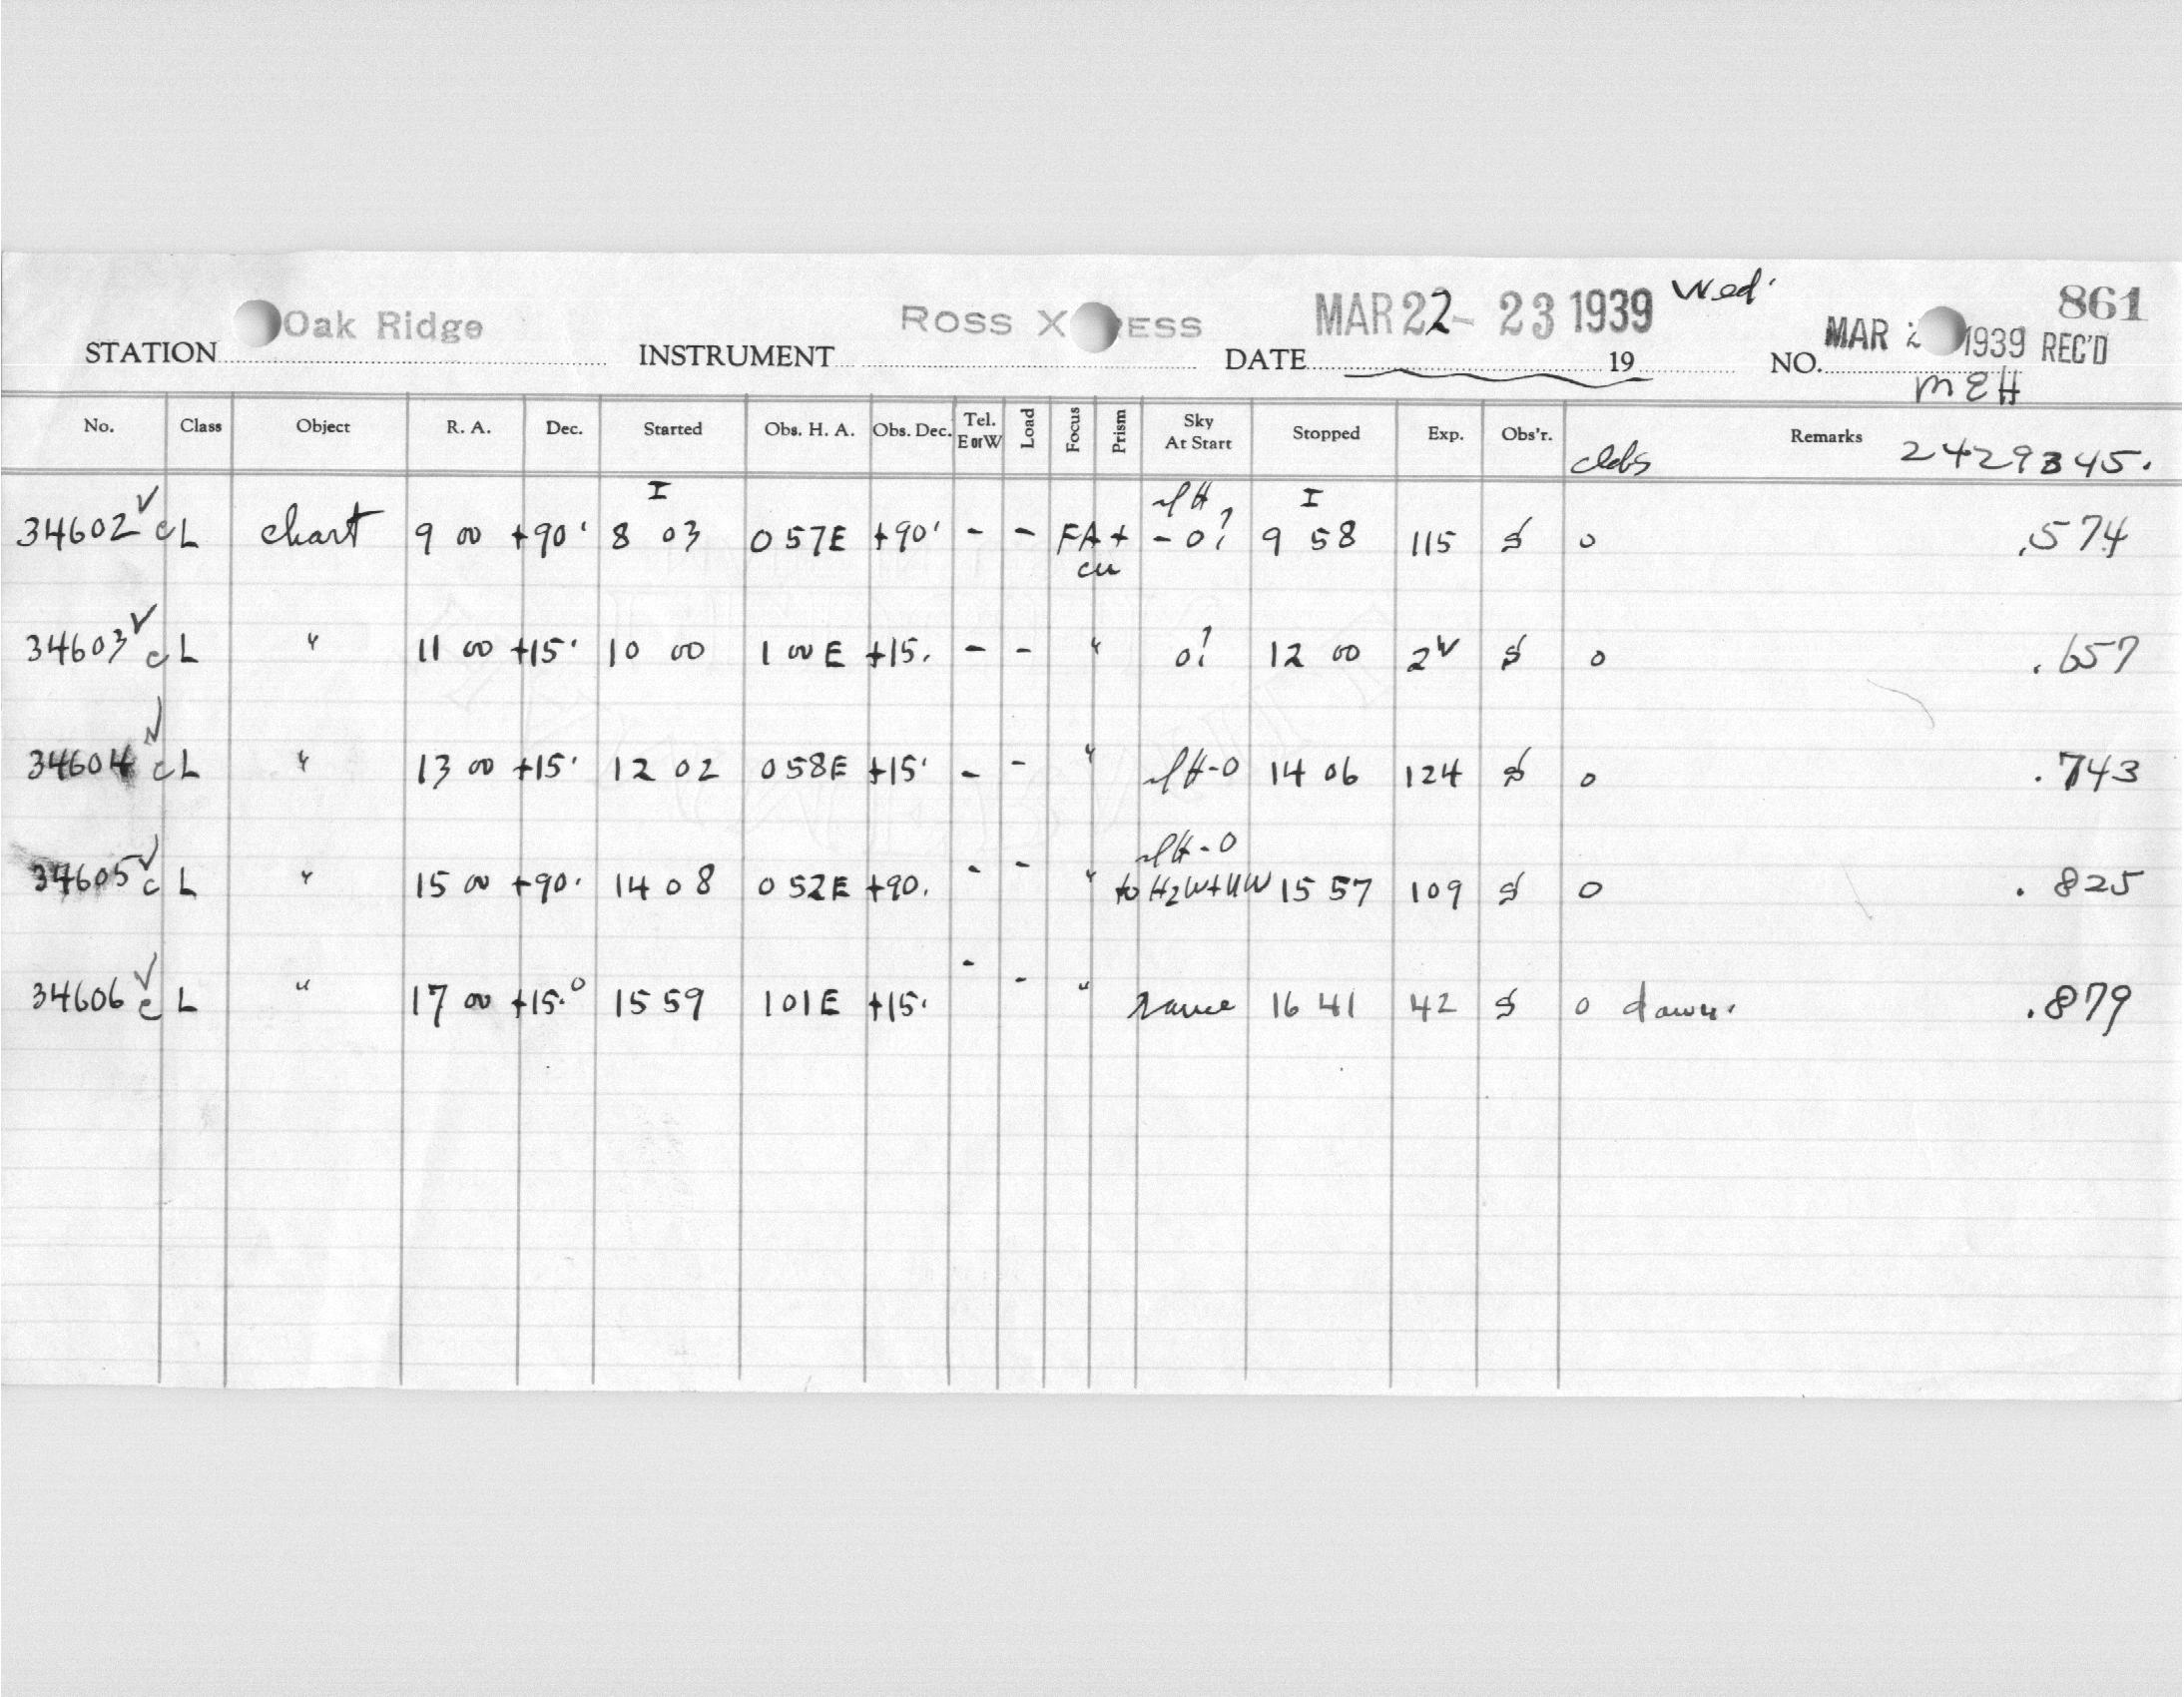 STATION Oak Ridge INSTRUMENT ROSS X ESS DATE MAR 22-23 1939 Wed. 19 NO. MAR 2 1939 REC'D 861
MEH
No. Class Object R. A. Dec. Started Obs. H. A. Obs. Dec. Tel. E or W Load Focus Prism Sky At Start Stopped Exp. Obs'r. Remarks 2429345.
I I
34602 ✓ c L chart 9 00 +90' 8 03 0 57E +90' - - FA+ - 0? 9 58 115 0 .574
cu
34603 ✓ c L " 11 00 +15' 10 00 1 00 E +15. - - " 0? 12 00 0 .657
34604 ✓ c L " 13 00 +15' 12 02 0 58E +15' - - " 14 06 124 0 .743
34605 ✓ c L " 15 00 +90. 14 08 0 52E +90. - - " to H2W+UW 15 57 109 0 .825
34606 ✓ c L " 17 00 +15.0 15 59 1 01E +15. - - " same 16 41 42 0 dawn. .879